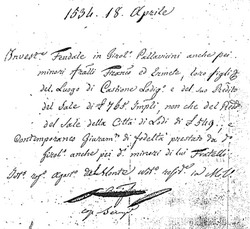 1534. 18. Aprile
Invest.ª Feudale in Girol.º Pallavicini anche pei
minori fratti Franc.º ed Ermete loro figlj
del Luogo di Castione Lodig.º e del suo Redito
del Sale di £ 765. Impli, non che del Redº
del Sale della Città di Lodi di £ 549, e
Contemporaneo Giuram.º di fedeltà prestato da dº
Girol.º anche pei dº minori di lui Fratelli